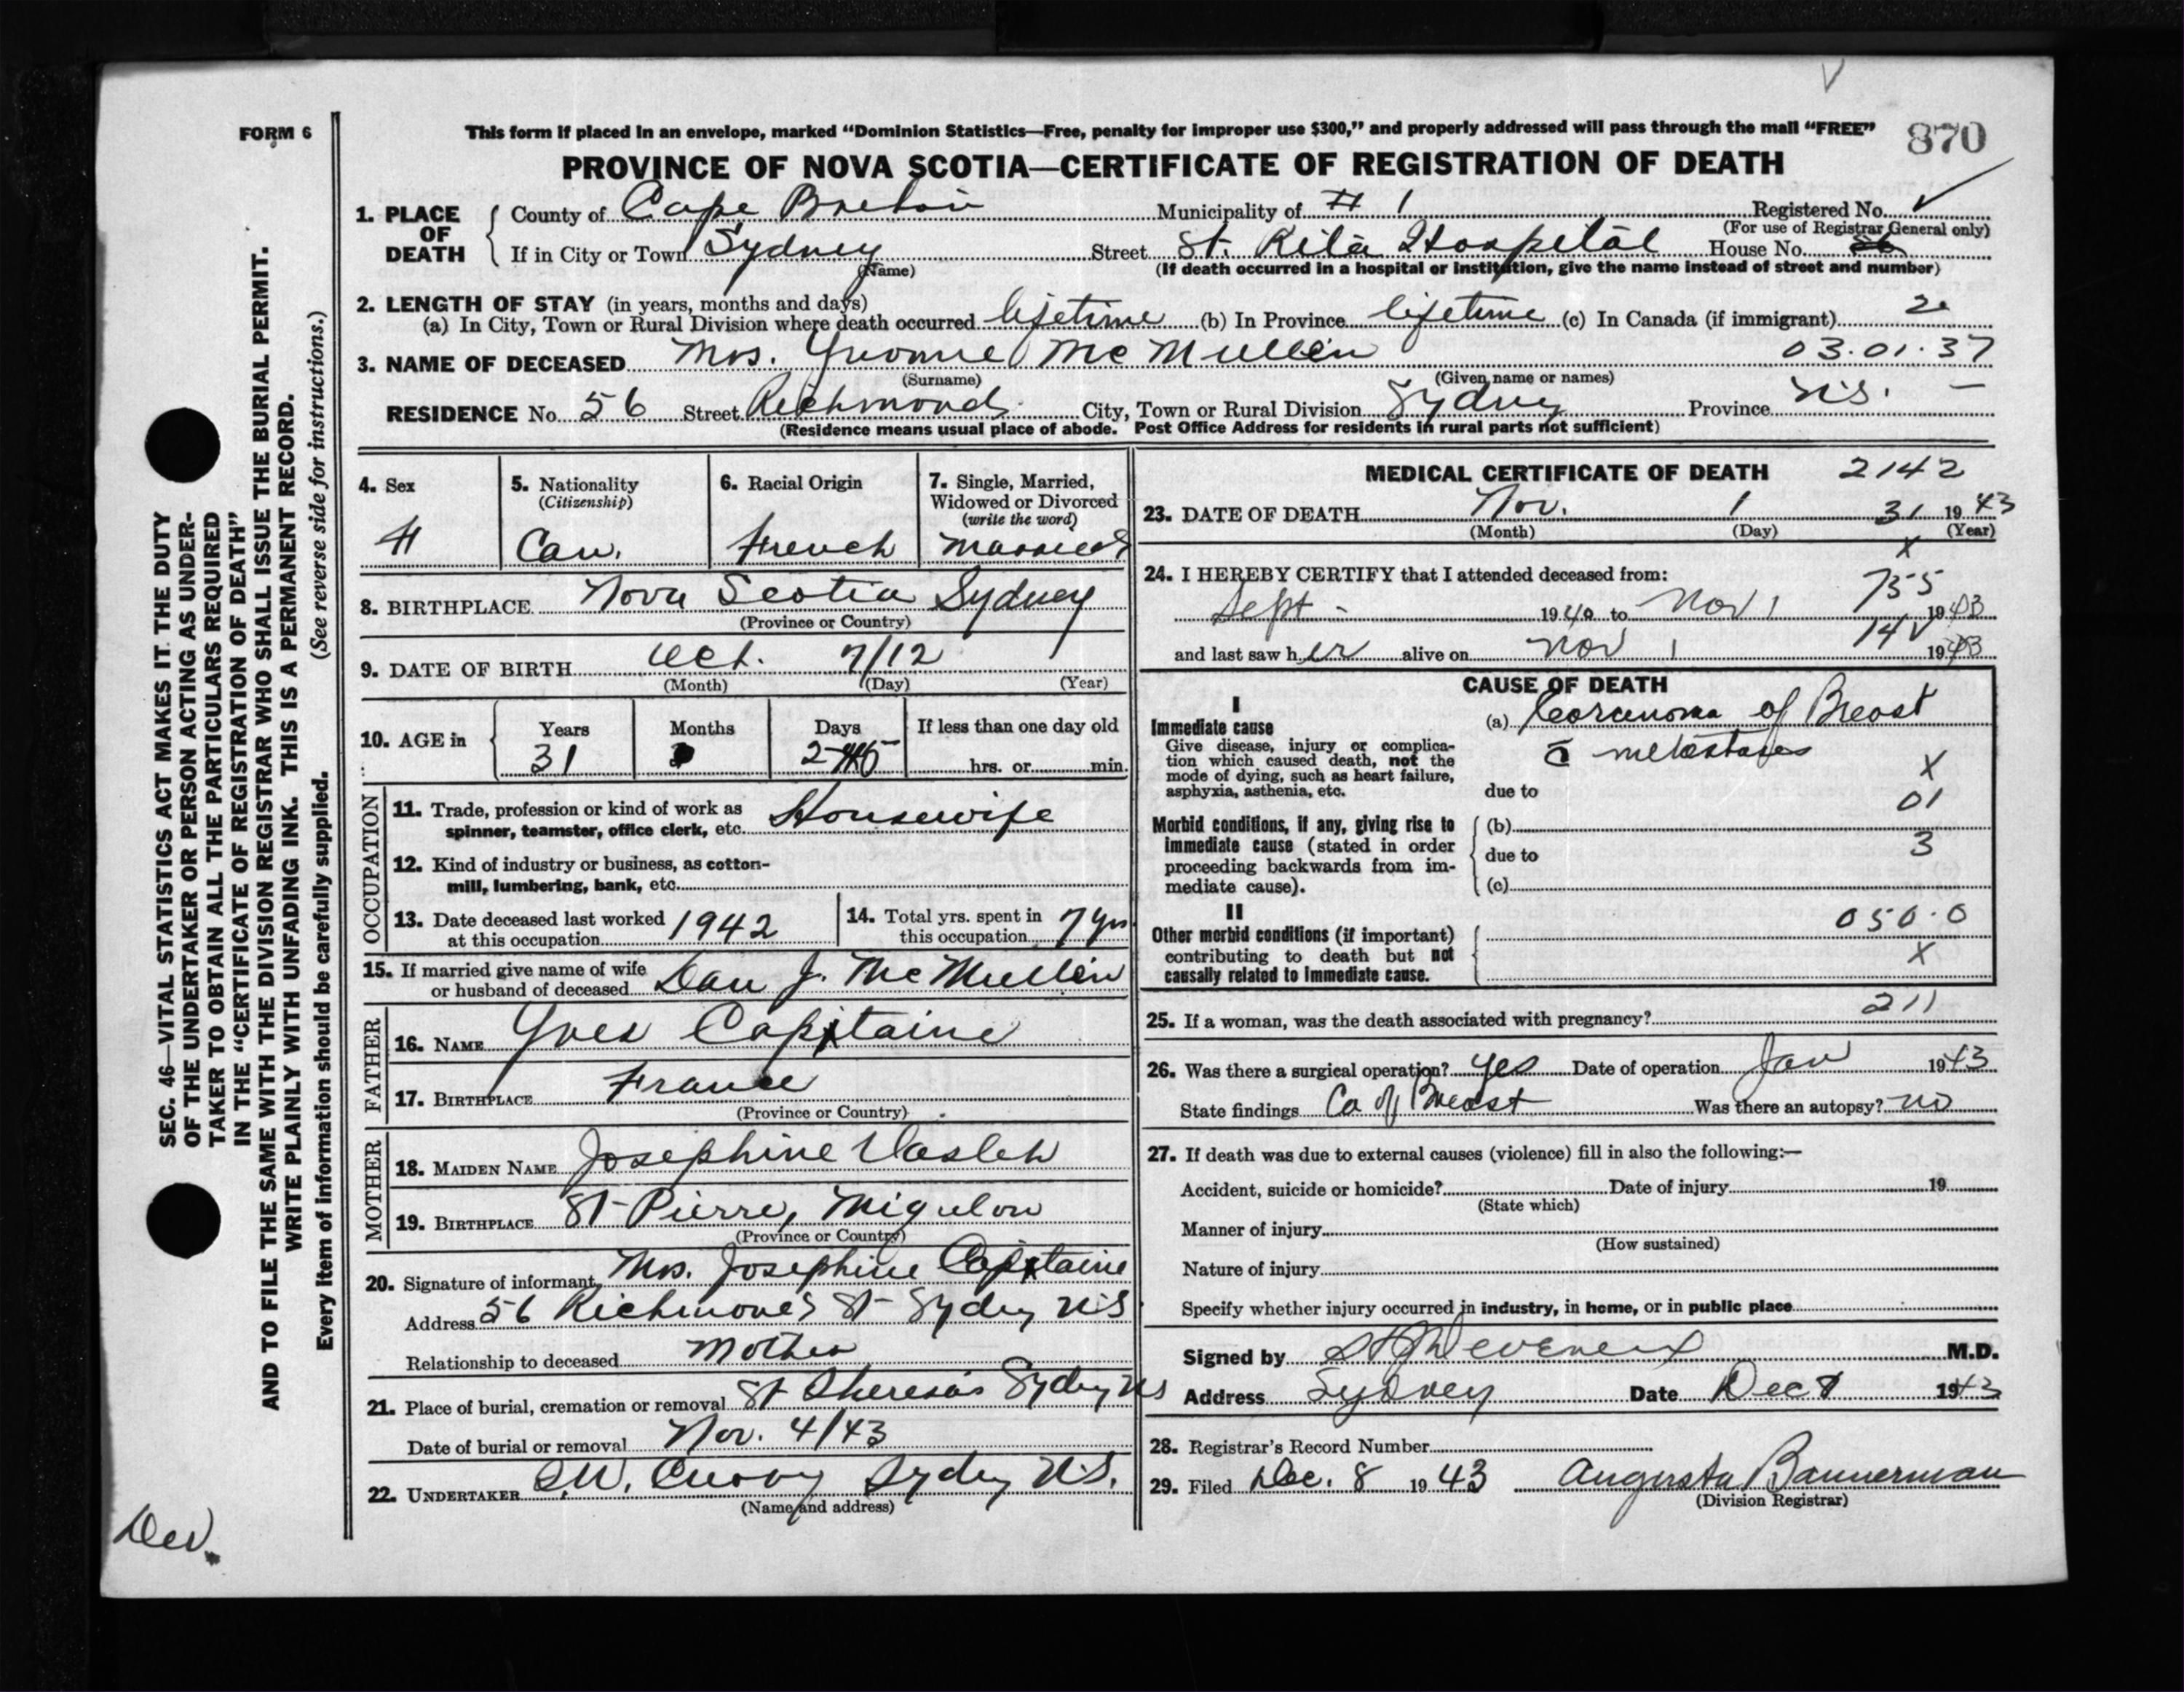 FORM 6
This form if placed in an envelope, marked “Dominion Statistics—Free, penalty for improper use $300,” and properly addressed will pass through the mail “FREE”
870
PROVINCE OF NOVA SCOTIA—CERTIFICATE OF REGISTRATION OF DEATH
1. PLACE OF DEATH
County of Cape Breton Municipality of # 1 Registered No.
(For use of Registrar General only)
If in City or Town Sydney Street St. Rita Hospital House No.
(Name) (If death occurred in a hospital or institution, give the name instead of street and number)
2. LENGTH OF STAY (in years, months and days)
(a) In City, Town or Rural Division where death occurred lifetime (b) In Province lifetime (c) In Canada (if immigrant) 2
3. NAME OF DECEASED Mrs. Yvonne McMullin 03.01.37
(Surname) (Given name or names)
RESIDENCE No. 56 Street Richmond City, Town or Rural Division Sydney Province N.S. —
(Residence means usual place of abode. Post Office Address for residents in rural parts not sufficient)
4. Sex
5. Nationality
(Citizenship)
Can.
6. Racial Origin
French
7. Single, Married,
Widowed or Divorced
(write the word)
Married
8. BIRTHPLACE Nova Scotia Sydney
(Province or Country)
9. DATE OF BIRTH Oct. 7/12
(Month) (Day) (Year)
10. AGE in
Years Months Days If less than one day old
31 hrs. or min.
OCCUPATION
11. Trade, profession or kind of work as
spinner, teamster, office clerk, etc. Housewife
12. Kind of industry or business, as cotton-
mill, lumbering, bank, etc.
13. Date deceased last worked
at this occupation 1942
14. Total yrs. spent in
this occupation 7 yrs
15. If married give name of wife
or husband of deceased Dan J. McMullin
FATHER
16. NAME Yves Capitaine
17. BIRTHPLACE France
(Province or Country)
MOTHER
18. MAIDEN NAME Josephine
19. BIRTHPLACE St Pierre, Miquelon
(Province or Country)
20. Signature of informant Mrs. Josephine Capitaine
Address 56 Richmond St Sydney N.S
Relationship to deceased Mother
21. Place of burial, cremation or removal St Theresa's Sydney NS
Date of burial or removal Nov. 4/43
22. UNDERTAKER Sydney N.S.
(Name and address)
MEDICAL CERTIFICATE OF DEATH 2142
23. DATE OF DEATH Nov. 1 31 1943
(Month) (Day) (Year)
X
24. I HEREBY CERTIFY that I attended deceased from:
755
Sept - 1940 to Nov 1 1943
14
and last saw her alive on Nov 1 1943
CAUSE OF DEATH
I
Immediate cause
Give disease, injury or complica-
tion which caused death, not the
mode of dying, such as heart failure,
asphyxia, asthenia, etc.
(a) Carcinoma of Breast
c̄ metastases
X
due to
01
Morbid conditions, if any, giving rise to
immediate cause (stated in order
proceeding backwards from im-
mediate cause).
(b)
due to 3
(c)
II
Other morbid conditions (if important)
contributing to death but not
causally related to immediate cause.
050.0
X
211
25. If a woman, was the death associated with pregnancy?
26. Was there a surgical operation? yes Date of operation Jan 1943
State findings Ca of Breast Was there an autopsy? no
27. If death was due to external causes (violence) fill in also the following:—
Accident, suicide or homicide? Date of injury 19
(State which)
Manner of injury
(How sustained)
Nature of injury
Specify whether injury occurred in industry, in home, or in public place
Signed by M.D.
Address Sydney Date Dec 1943
28. Registrar's Record Number
29. Filed Dec. 8 1943 Augusta Bannerman
(Division Registrar)
SEC. 46—VITAL STATISTICS ACT MAKES IT THE DUTY
OF THE UNDERTAKER OR PERSON ACTING AS UNDER-
TAKER TO OBTAIN ALL THE PARTICULARS REQUIRED
IN THE “CERTIFICATE OF REGISTRATION OF DEATH”
AND TO FILE THE SAME WITH THE DIVISION REGISTRAR WHO SHALL ISSUE THE BURIAL PERMIT.
WRITE PLAINLY WITH UNFADING INK. THIS IS A PERMANENT RECORD.
Every item of information should be carefully supplied. (See reverse side for instructions.)